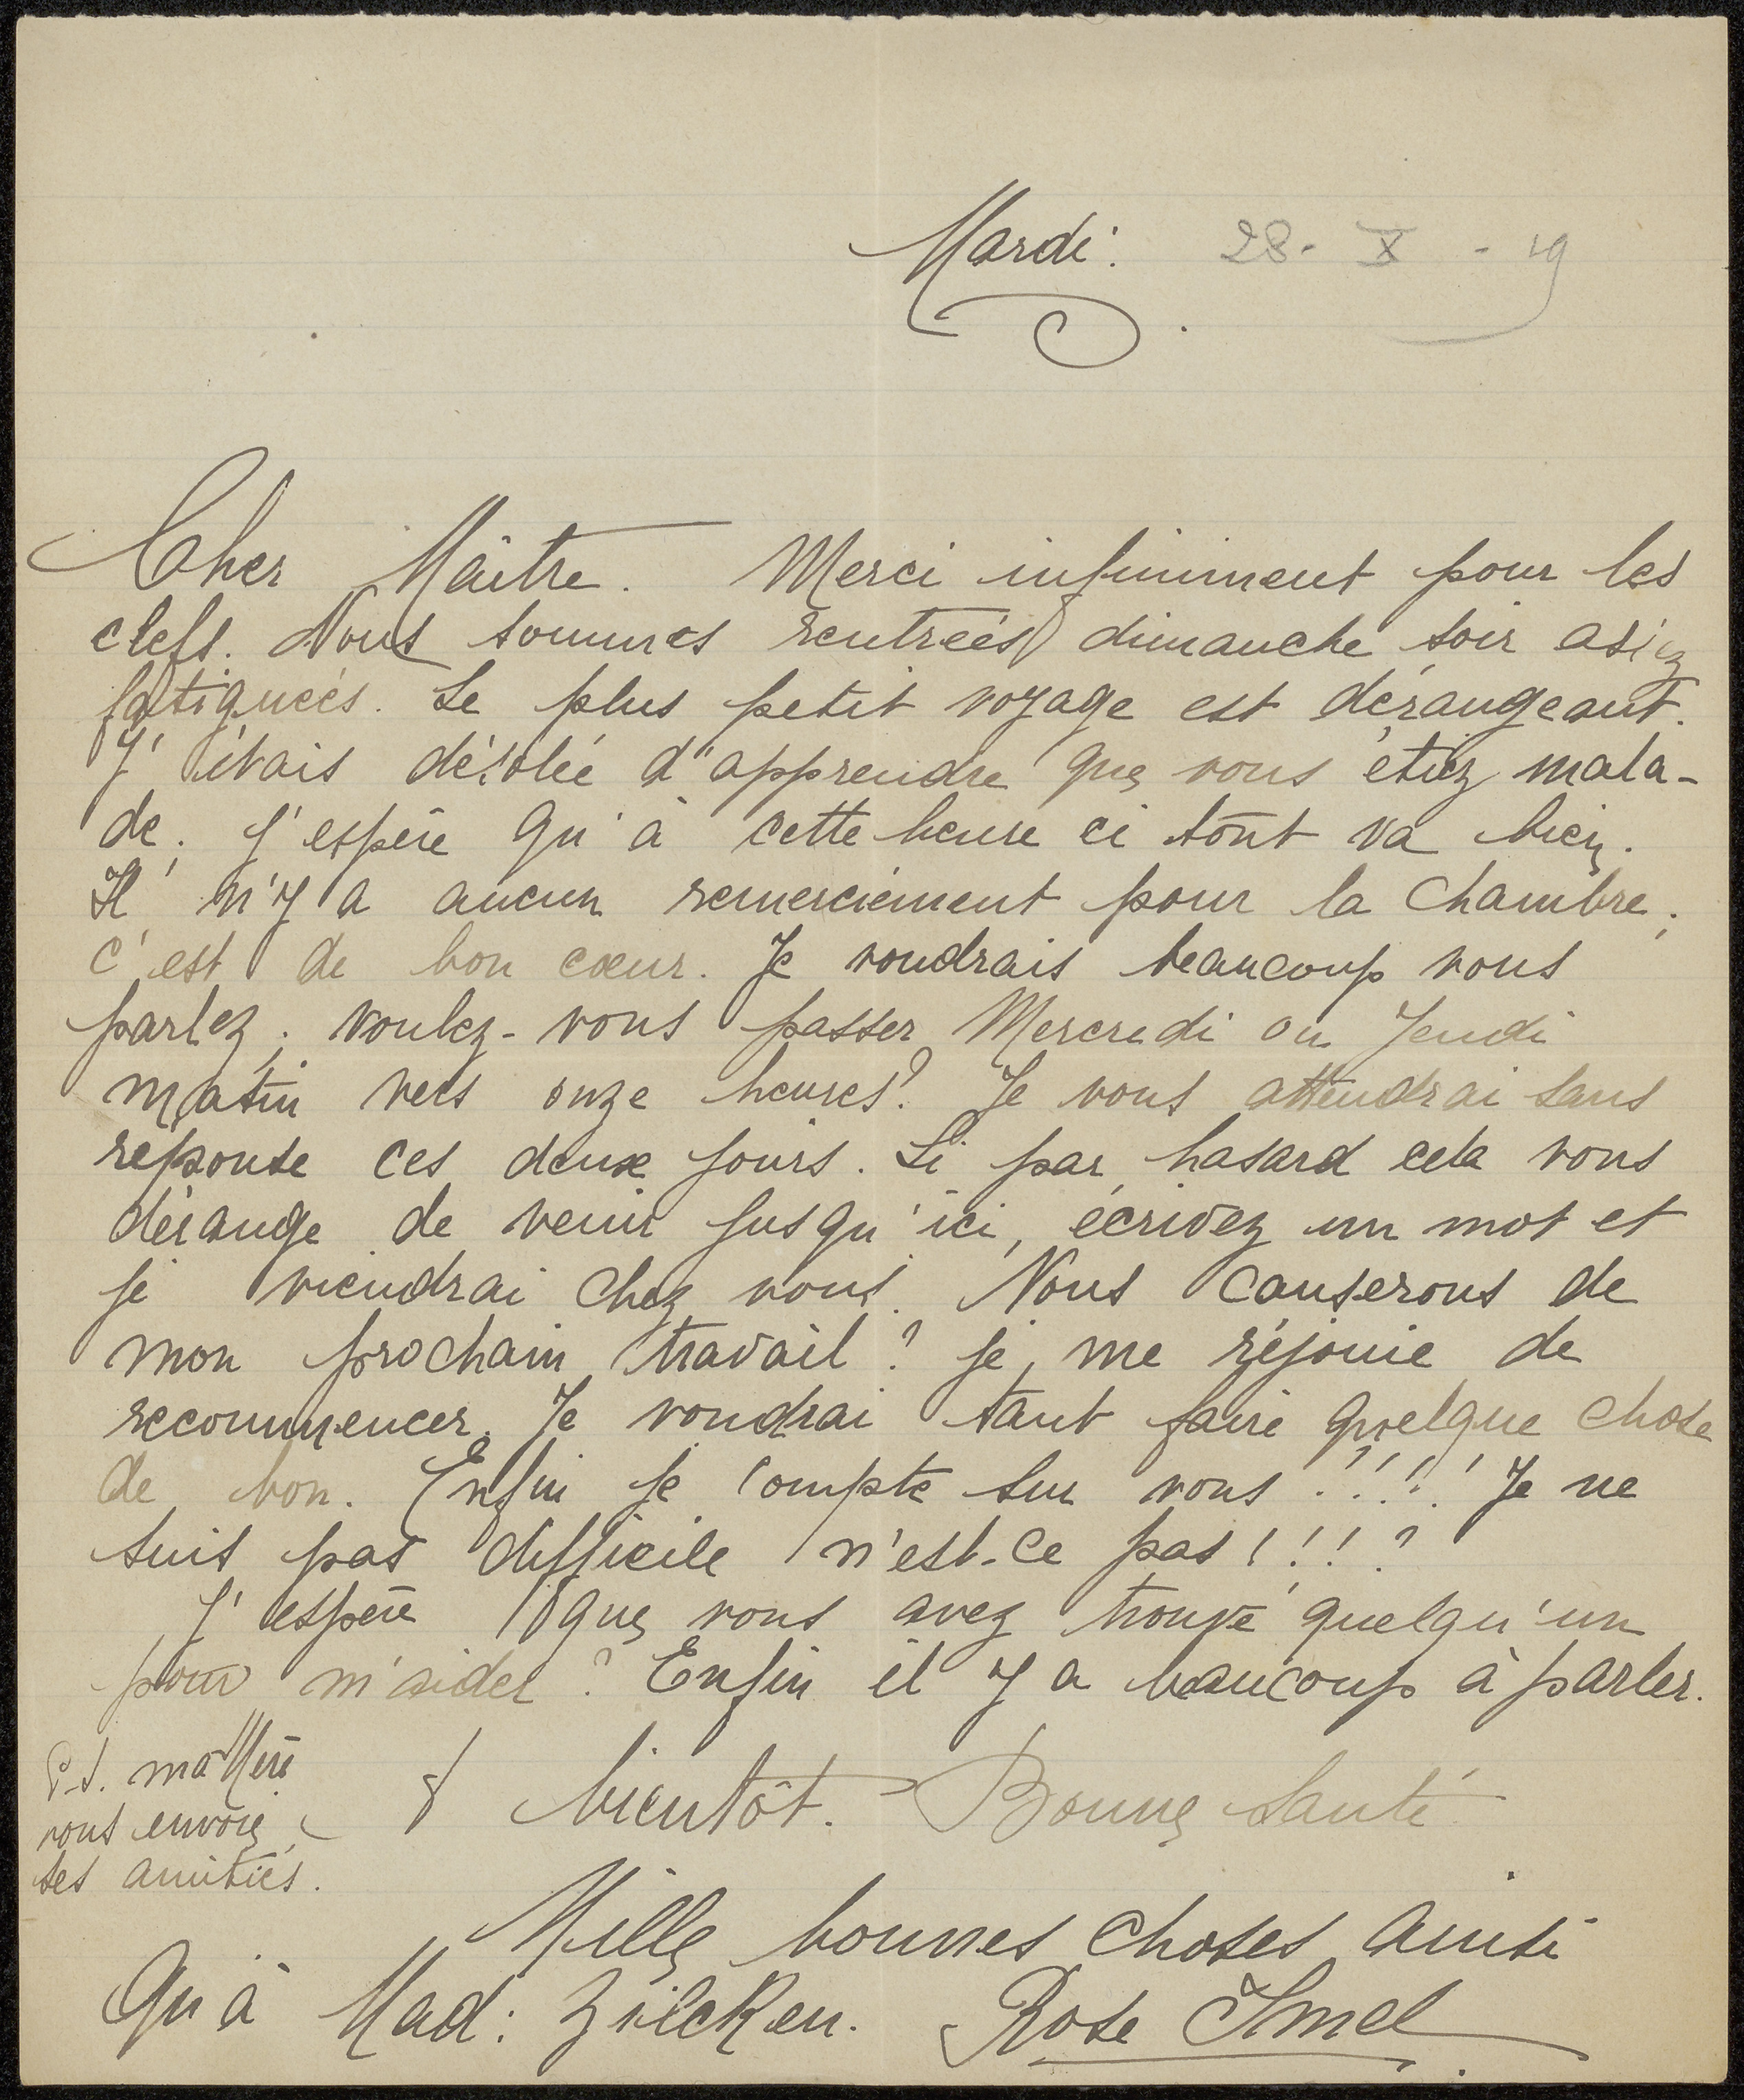 Mardi. 28 - X - 19
Cher Maître. Merci infiniment pour les
clefs. Nous sommes rentrées dimanche soir assez
fatiguées. Le plus petit voyage est dérangeant.
J'étais désolée d'apprendre que vous étiez mala-
de. J'espère qu'à cette heure ci tout va bien.
Il n'y a aucun remerciement pour la chambre,
c'est de bon cœur. Je voudrais beaucoup vous
parlez; voulez-vous passer Mercredi ou Jeudi
matin vers onze heures? Je vous attendrai sans
reponse ces deux jours. Si par hasard cela vous
dérange de venir jusqu'ici, écrivez un mot et
je viendrai chez vous. Nous causerons de
mon prochain travail? je me réjouie de
recommencer. Je voudrai tant faire quelque chose
de bon. Enfin je compte sur vous!!!! Je ne
suis pas difficile n'est-ce pas!!!?
J'espère que vous avez trouvé quelqu'un
pour m'aider? Enfin il y a beaucoup à parler.
à bientôt. Bonne Santé
P.S. ma Mère
vous envoie
ses amitiés.
Mille bonnes choses ainsi
Qu'à Mad: Zilcken. Rose Imel